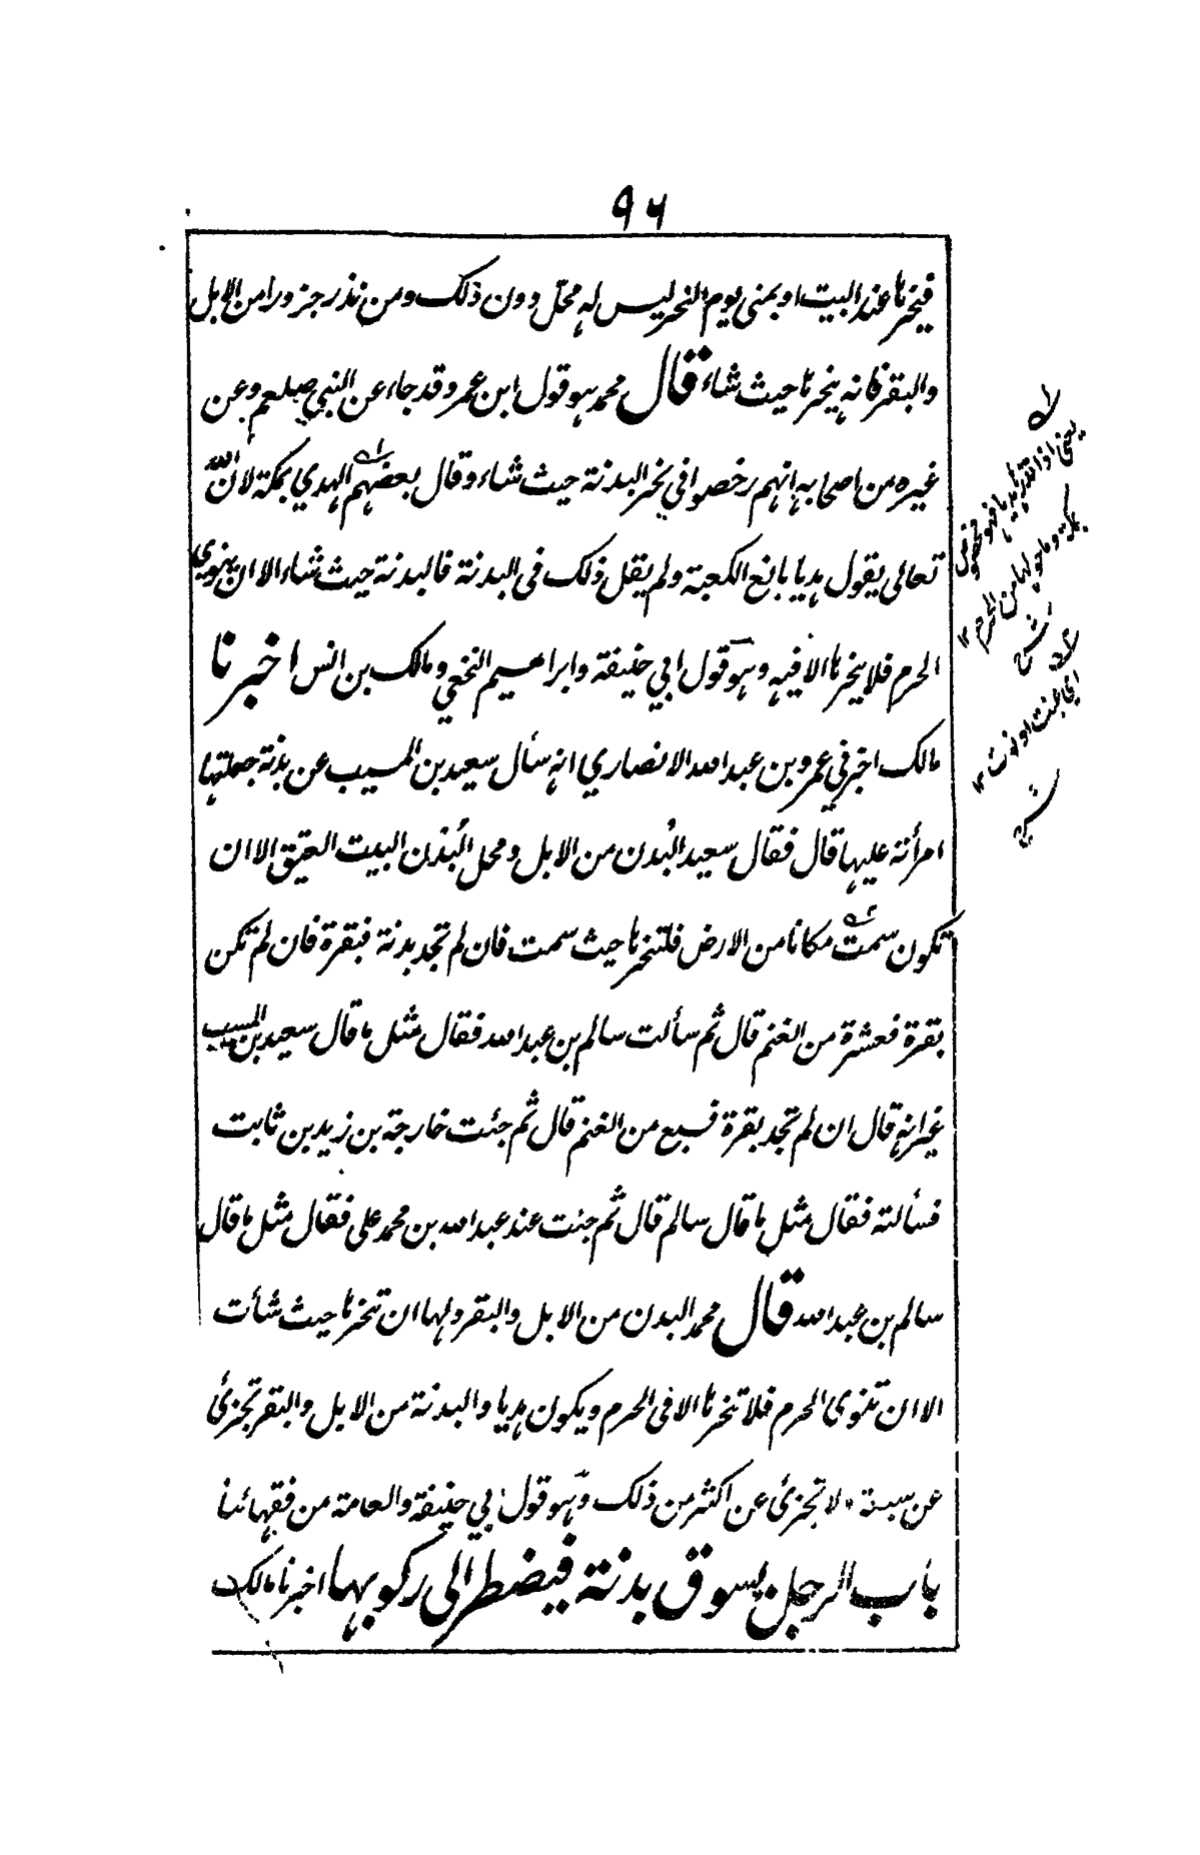 ٩٦
فينحرها عند البيت او بمنى يوم النحر ليس له محل دون ذلك ومن نذر جزورا من الابل
والبقر فانه ينحرها حيث شاء قال محمد هو قول ابن عمر وقد جاء عن النبي صلعم وعن
غيره من اصحابه انهم رخصوا في نحر البدنة حيث شاء وقال بعضهم الهدي بمكة لان الله
تعالى يقول هديا بالغ الكعبة ولم يقل ذلك فى البدنة فالبدنة حيث شاء الا ان ينوي
الحرم فلا ينحرها الا فيه وهو قول ابي حنيفة وابراهيم النخعي ومالك بن انس اخبرنا
مالك اخبرني عمرو بن عبد الله الانصاري انه سأل سعيد بن المسيب عن بدنة جعلتها
امرأته عليها قال فقال سعيد البُدن من الابل ومحل البُدْن البيت العتيق الا ان
تكون سمت مكانا من الارض فلتنحرها حيث سمت فان لم تجد بدنة فبقرة فان لم تكن
بقرة فعشرة من الغنم قال ثم سألت سالم بن عبد الله فقال مثل ما قال سعيد بن المسيب
غير انه قال ان لم تجد بقرة فسبع من الغنم قال ثم جئت خارجة بن زيد بن ثابت
فسألته فقال مثل ما قال سالم قال ثم جئت عند عبد الله بن محمد على فقال مثل ما قال
سالم بن عبد الله قال محمد البدن من الابل والبقر ولها ان تنحرها حيث شأت
الا ان تنوى الحرم فلا تنحرها الا فى الحرم ويكون هديا والبدنة من الابل والبقر تجزئ
عن سبعة ولا تجزئ عن اكثر من ذلك وهو قول ابي حنيفة والعامة من فقهائنا
باب الرجل يسوق بدنة فيضطر الى ركوبها اخبرنا مالك
يعنى اذا
بمكة وما حولها من الحرم ١٢
شرح
اي عينت او نوت ١٢
شرح